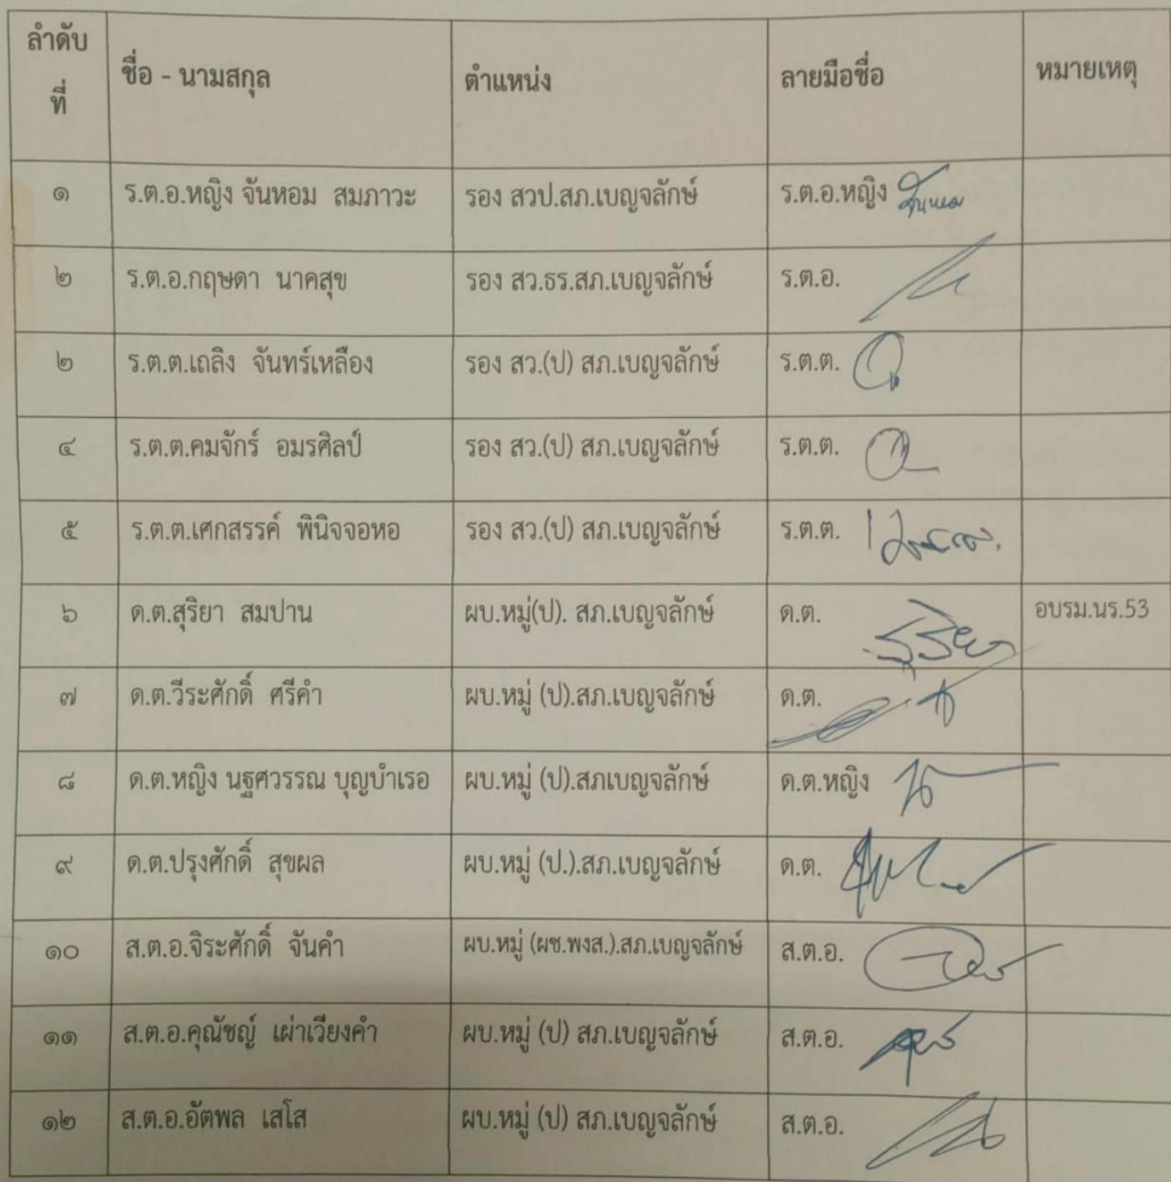 ลำดับ
ที่
ชื่อ - นามสกุล ตำแหน่ง ลายมือชื่อ หมายเหตุ
๑ ร.ต.อ.หญิง จันหอม สมภาวะ รอง สวป.สภ.เบญจลักษ์ ร.ต.อ.หญิง จันหอม
๒ ร.ต.อ.กฤษดา นาคสุข รอง สว.ธร.สภ.เบญจลักษ์ ร.ต.อ.
๒ ร.ต.ต.เถลิง จันทร์เหลือง รอง สว.(ป) สภ.เบญจลักษ์ ร.ต.ต.
๔ ร.ต.ต.คมจักร์ อมรศิลป์ รอง สว.(ป) สภ.เบญจลักษ์ ร.ต.ต.
๕ ร.ต.ต.เศกสรรค์ พินิจจอหอ รอง สว.(ป) สภ.เบญจลักษ์ ร.ต.ต.
๖ ด.ต.สุริยา สมปาน ผบ.หมู่(ป). สภ.เบญจลักษ์ ด.ต. สุริยา อบรม.นร.53
๗ ด.ต.วีระศักดิ์ ศรีคำ ผบ.หมู่ (ป).สภ.เบญจลักษ์ ด.ต.
๘ ด.ต.หญิง นฐศวรรณ บุญบำเรอ ผบ.หมู่ (ป).สภเบญจลักษ์ ด.ต.หญิง
๙ ด.ต.ปรุงศักดิ์ สุขผล ผบ.หมู่ (ป.).สภ.เบญจลักษ์ ด.ต.
๑๐ ส.ต.อ.จิระศักดิ์ จันคำ ผบ.หมู่ (ผช.พงส.).สภ.เบญจลักษ์ ส.ต.อ.
๑๑ ส.ต.อ.คุณัชญ์ เผ่าเวียงคำ ผบ.หมู่ (ป) สภ.เบญจลักษ์ ส.ต.อ.
๑๒ ส.ต.อ.อัตพล เสโส ผบ.หมู่ (ป) สภ.เบญจลักษ์ ส.ต.อ.